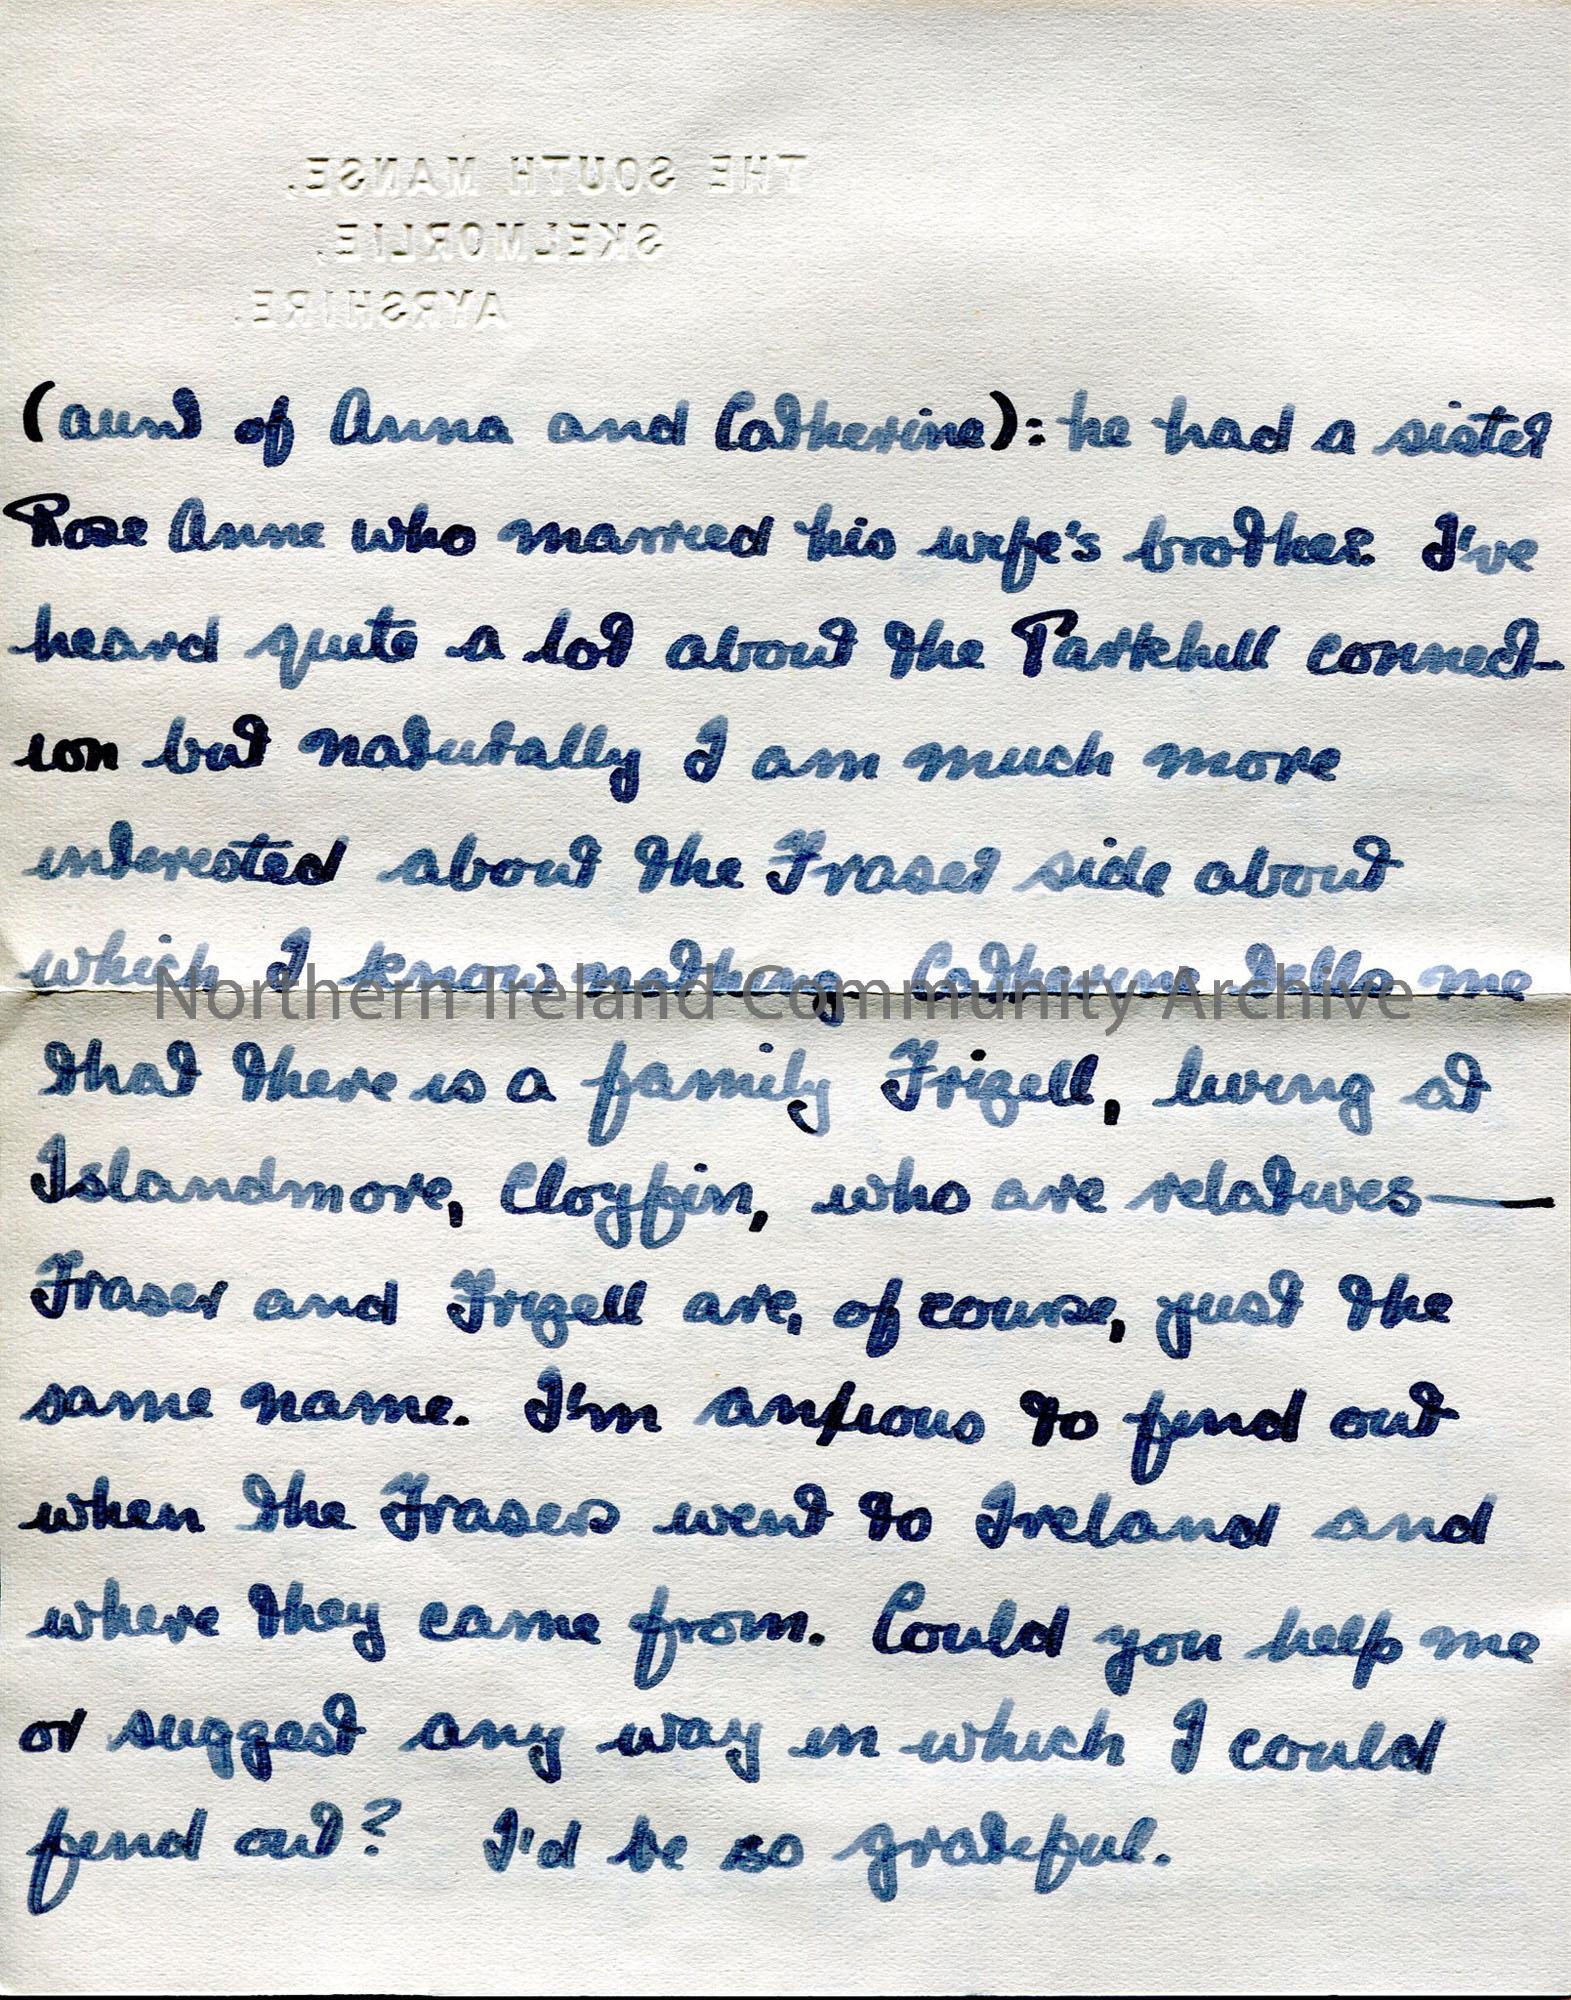 THE SOUTH MANSE,
SKELMORLIE,
AYRSHIRE.
(aunt of Anna and Catherine): he had a sister
Rose Anne who married his wife's brother. I've
heard quite a lot about the Parkhill connect-
ion but naturally I am much more
interested about the Fraser side about
which I know nothing. Catherine tells me
Northern Ireland Community Archive
that there is a family Frizell, living at
Islandmore, Cloyfin, who are relatives—
Fraser and Frizell are, of course, just the
same name. I'm anxious to find out
when the Frasers went to Ireland and
where they came from. Could you help me
or suggest any way in which I could
find out? I'd be so grateful.